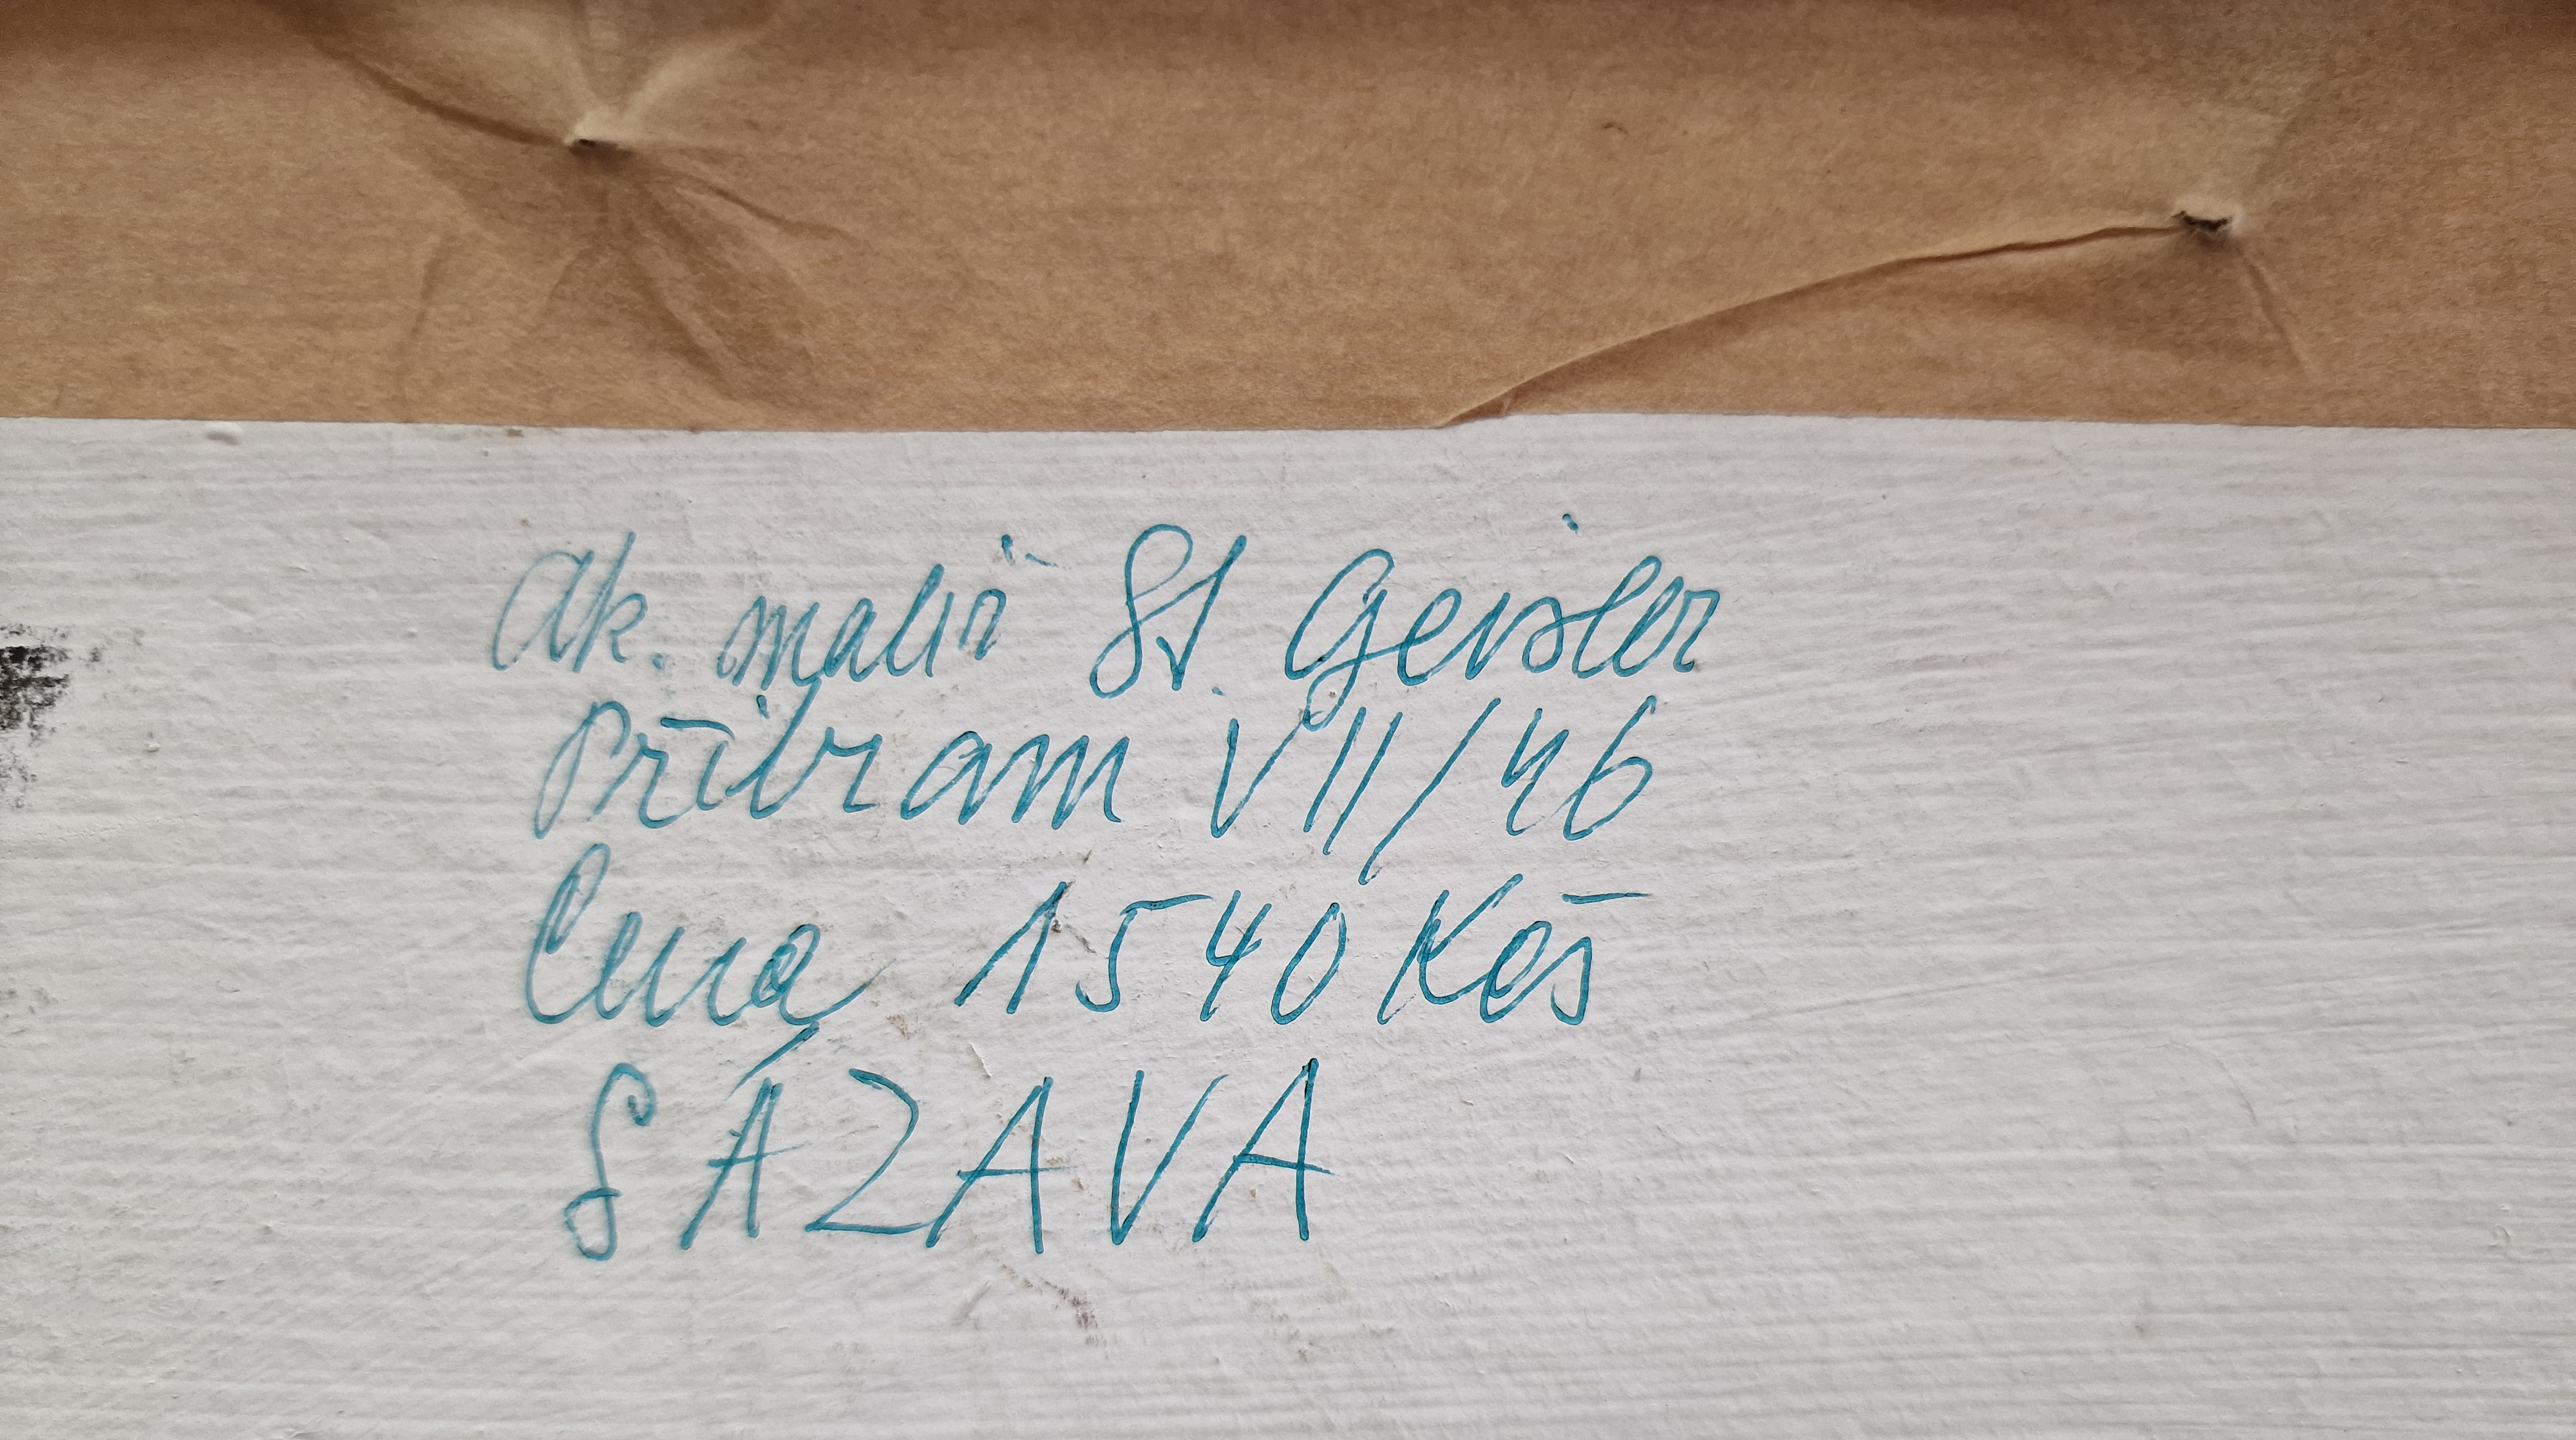 Ak. malíř St. Geisler
Příbram VII/46
Cena 1540 Kčs
SÁZAVA